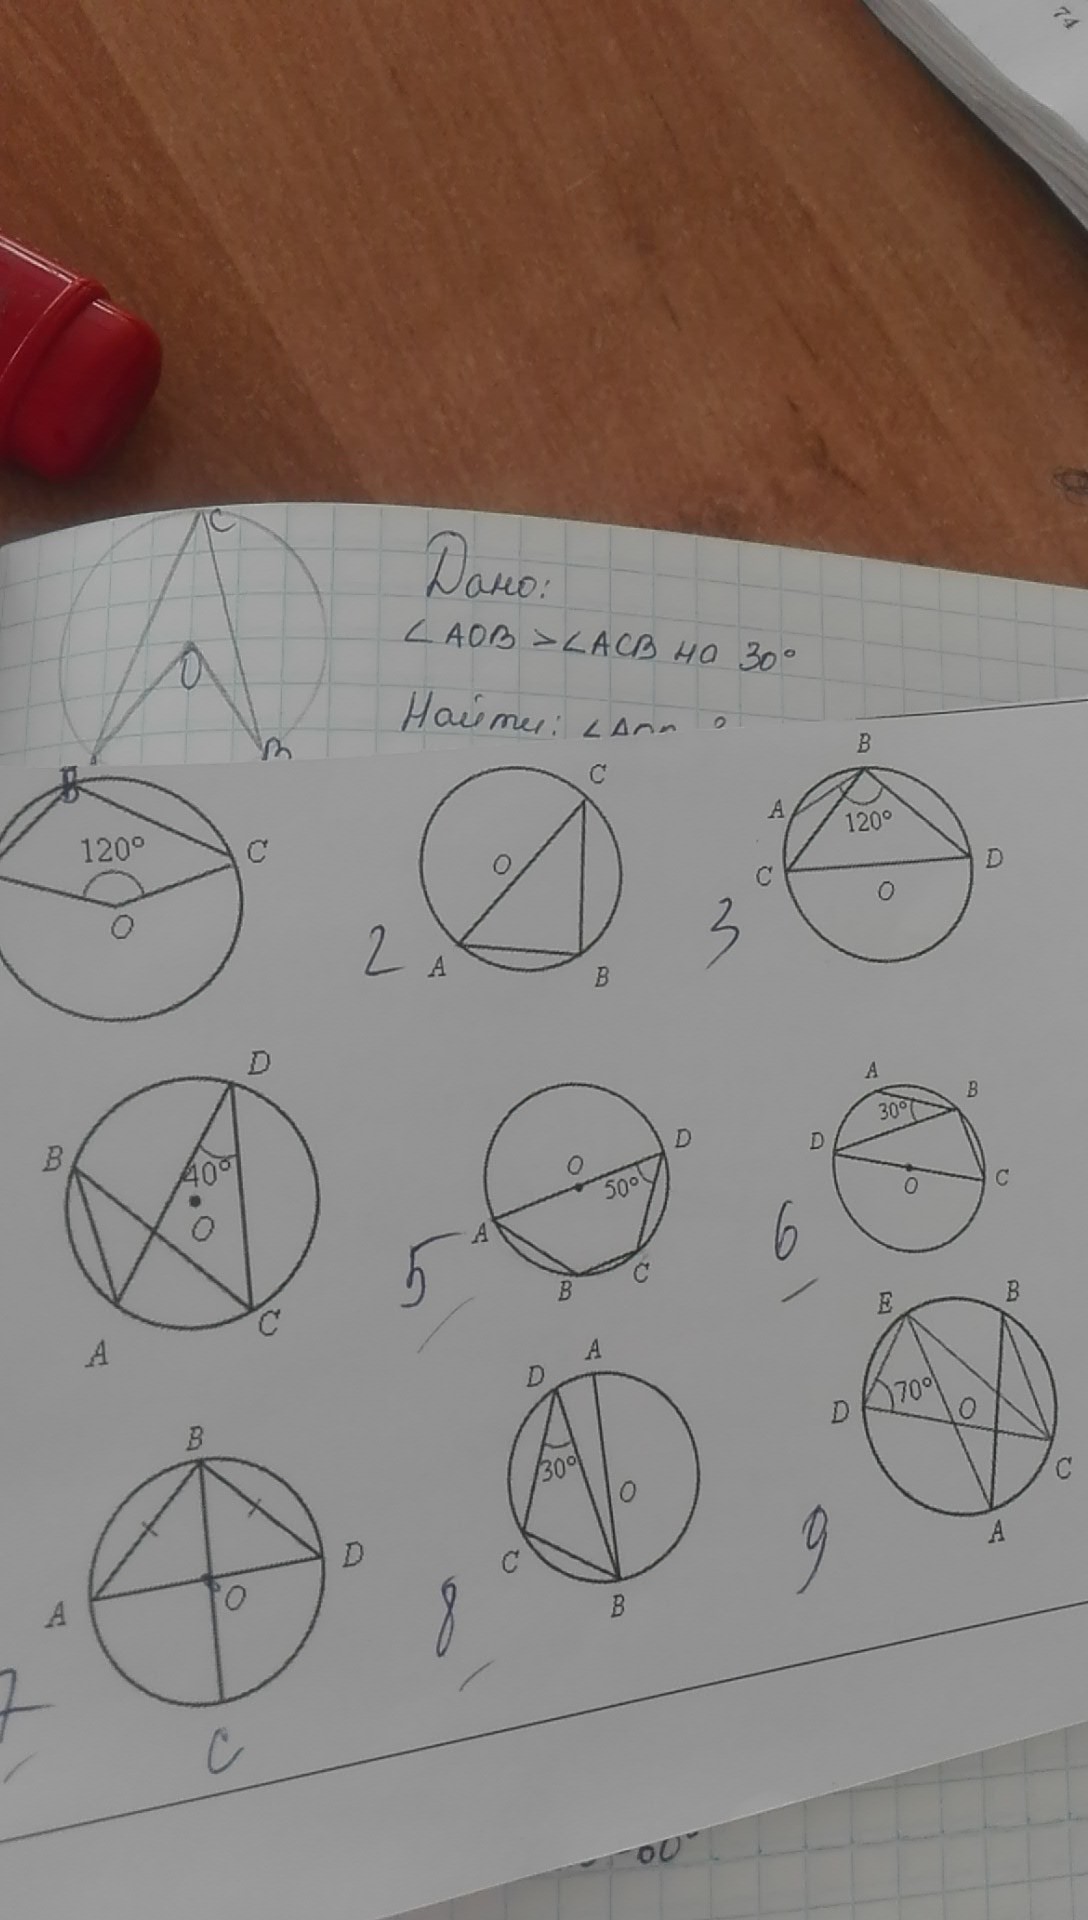 74
C
Дано:
∠AOB > ∠ACB на 30°
O
Найти:
B
B
120°
C
O
C
O
2
A
B
B
A
120°
C
D
O
3
D
B
40°
O
A
C
D
O
50°
A
B
C
5
A
B
30°
D
O
C
6
B
A
O
D
C
7
D
A
30°
O
C
B
8
E
B
70°
D
O
C
A
9
60°